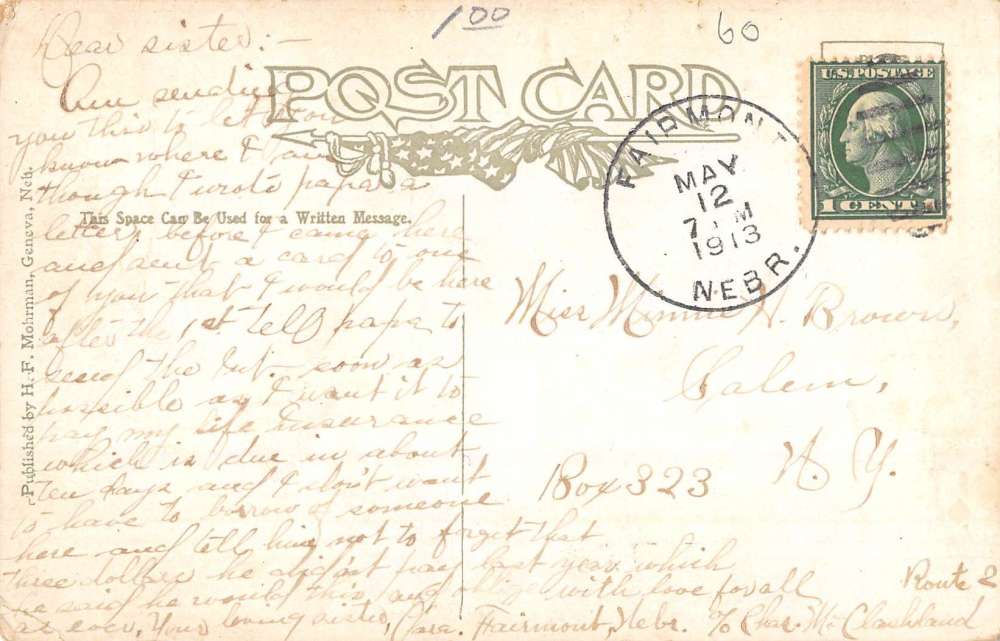 1 00
60
POST CARD
U.S. POSTAGE
1 CENT 1
FAIRMONT
MAY
12
7 M
1913
NEBR.
Published by H. F. Mohrman, Geneva, Neb.
This Space Can Be Used for a Written Message.
Dear sister:-
Am sending
you this to let you
know where I am
though I wrote papa a
letter before I came here
and sent a card to one
of you that I would be here
after the 1st tell papa to
send the Int. - soon as
possible as I want it to
pay my life insurance
which is due in about
ten days and I don't want
to have to borrow of someone
here and tell him not to forget that
three dollars he didn't pay last year which
he said he would this, and oblige with love for all
as ever, Your loving sister, Cora. Fairmont, Nebr. % Chas. McClanhland
Miss Minnie H. Brown,
Salem,
N. Y.
Box 323
Route 2